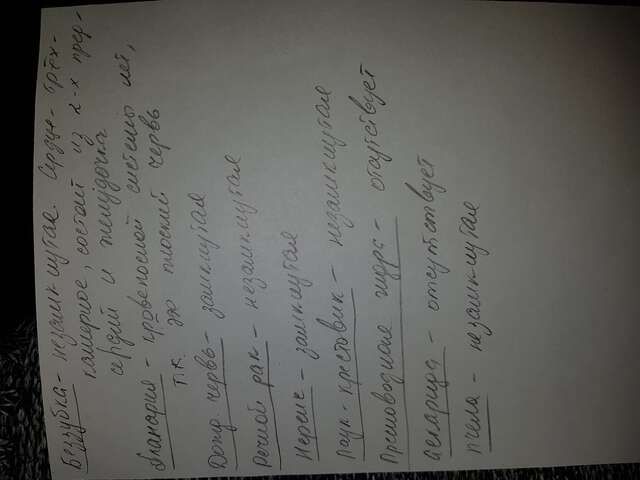 Беззубка - незамкнутая. Сердце - трёх-
камерное, состоит из 2-х пред-
сердий и желудочка
Планария - кровеносной системы нет,
т.к. это плоский червь
Дожд. червь - замкнутая
Речной рак - незамкнутая
Нереис - замкнутая
Паук-крестовик - незамкнутая
Пресноводная гидра - отсутствует
Аскарида - отсутствует
Пчела - незамкнутая